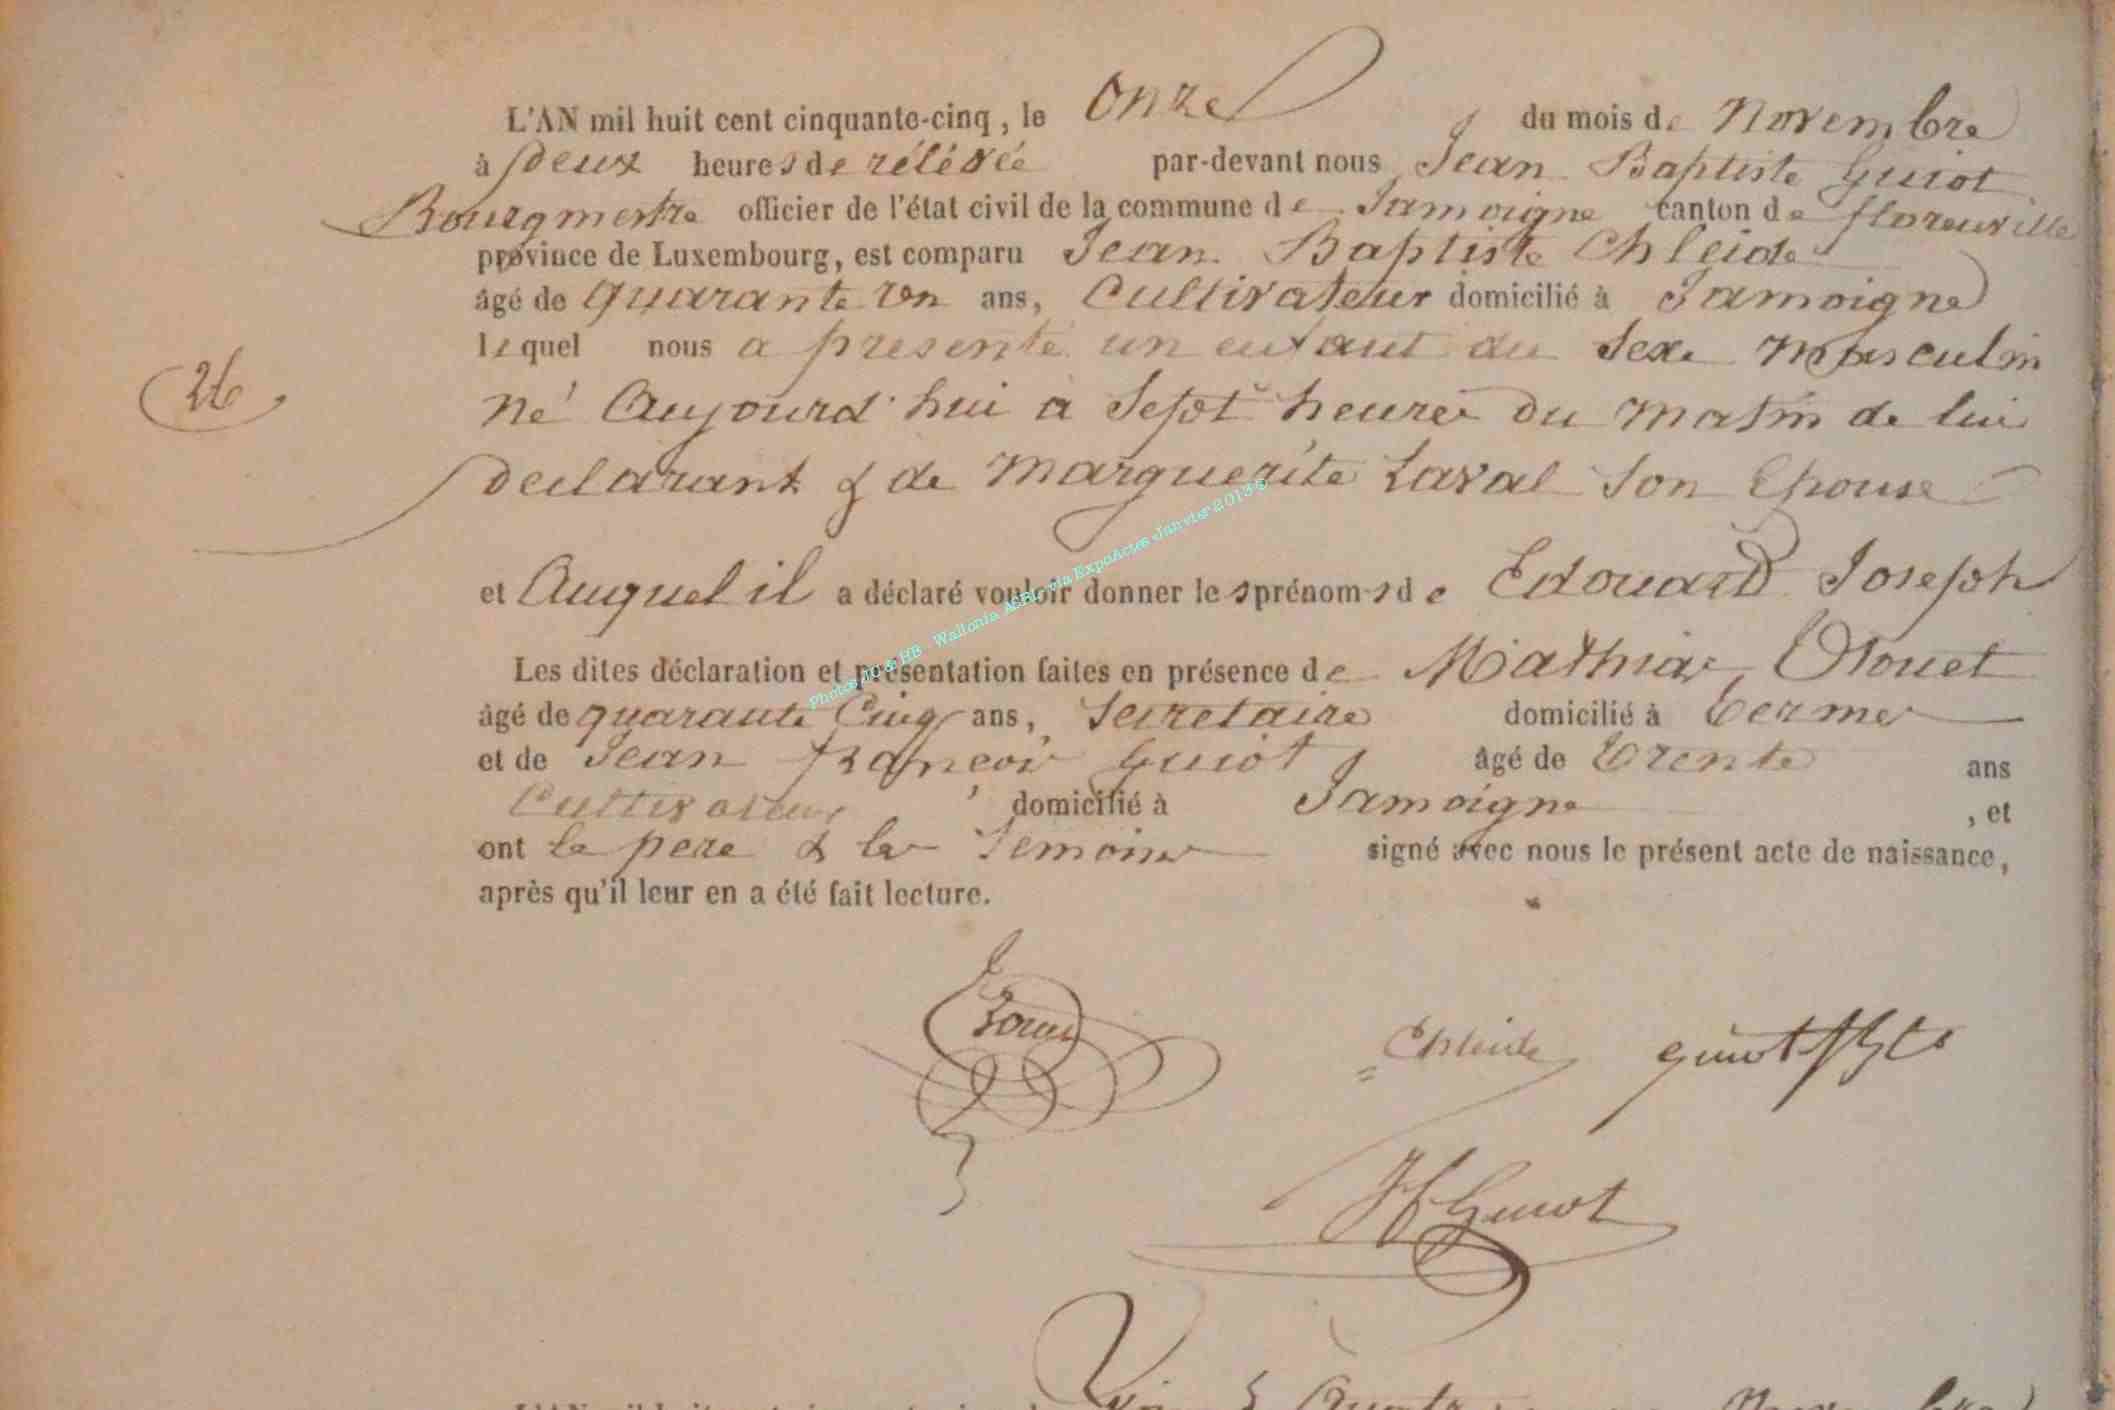 L'AN mil huit cent cinquante-cinq, le Onze du mois de Novembre
à deux heures de rélévée par-devant nous Jean Baptiste Guiot
Bourgmestre officier de l'état civil de la commune de Jamoigne canton de florenville
province de Luxembourg, est comparu Jean Baptiste Chleide
âgé de quarante un ans, Cultivateur domicilié à Jamoigne
lequel nous a présenté un enfant du Sexe Masculin
26
né Aujourd'hui à Sept heures du matin de lui
declarant & de Marguerite Laval Son Epouse
et Auquel il a déclaré vouloir donner les prénoms de Edouard Joseph
Photos JC & HB - Wallonia ASBL via ExpoActes Janvier 2013 ©
Les dites déclaration et présentation faites en présence de Mathias
âgé de quarante Cinq ans, Secretaire domicilié à Termes
et de Jean françois Guiot âgé de trente ans
Cultivateur, domicilié à Jamoigne, et
ont le pere & les Temoins signé avec nous le présent acte de naissance,
après qu'il leur en a été fait lecture.
Chleide guiot
Guiot
L'AN mil huit cent cinquante-cinq, le